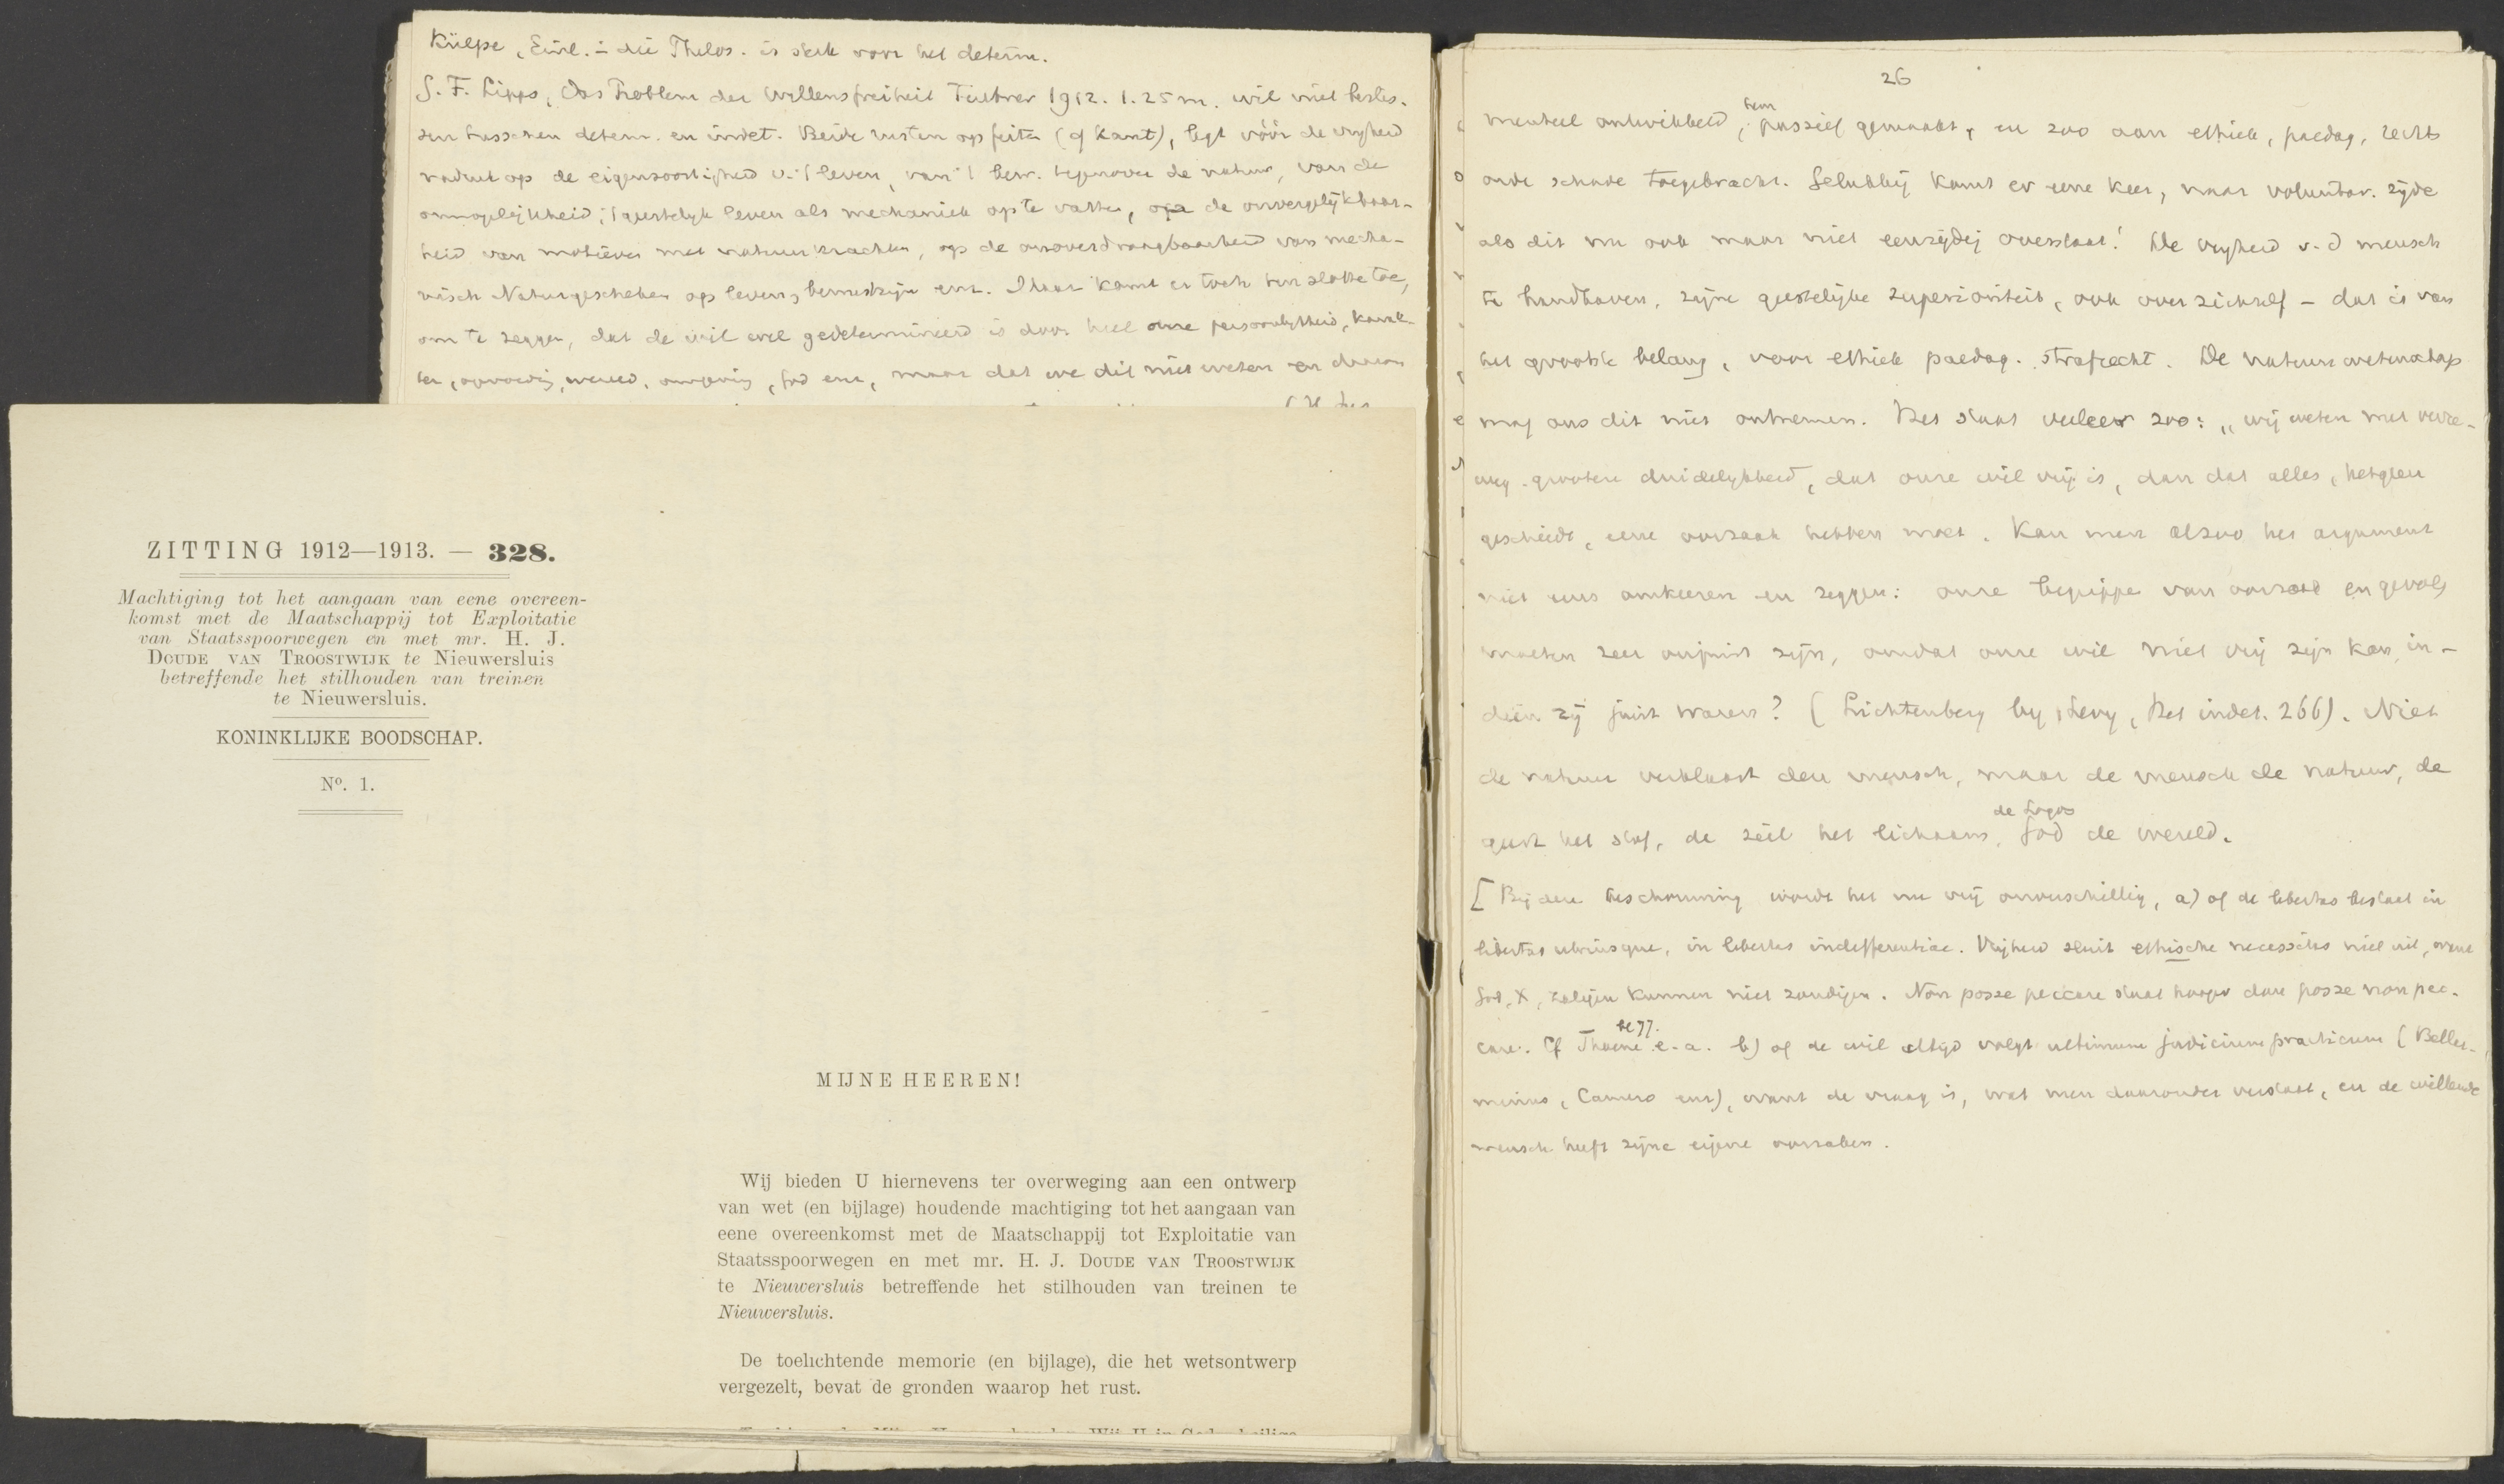 Külpe, Einl. in die Philos. is sterk voor het determ.
G. F. Lipps, Das Problem der Willensfreiheit Teubner 1912. 1.25 m. wil niet beslis-
sen tusschen determ. en indet. Beide rusten op feiten (cf Kant), legt vóór de vrijheid
nadruk op de eigensoortigheid v. 't leven, van 't bew. tegenover de natuur, van de
onmogelijkheid, 't geestelijk leven als mechaniek op te vatten, op de onvergelijkbaar-
heid van motieven met natuurkrachten, op de onoverdraagbaarheid van mecha-
nisch Naturgeschehen op leven, bewustzijn enz. Maar komt er toch ten slotte toe,
om te zeggen, dat de wil wel gedetermineerd is door heel onze persoonlijkheid, karak-
ter, opvoeding, wereld, omgeving, God enz, maar dat we dit niet weten en daarom
ZITTING 1912—1913. — 328.
Machtiging tot het aangaan van eene overeen-
komst met de Maatschappij tot Exploitatie
van Staatsspoorwegen en met mr. H. J.
DOUDE VAN TROOSTWIJK te Nieuwersluis
betreffende het stilhouden van treinen
te Nieuwersluis.
KONINKLIJKE BOODSCHAP.
N°. 1.
MIJNE HEEREN!
Wij bieden U hiernevens ter overweging aan een ontwerp
van wet (en bijlage) houdende machtiging tot het aangaan van
eene overeenkomst met de Maatschappij tot Exploitatie van
Staatsspoorwegen en met mr. H. J. DOUDE VAN TROOSTWIJK
te Nieuwersluis betreffende het stilhouden van treinen te
Nieuwersluis.
De toelichtende memorie (en bijlage), die het wetsontwerp
vergezelt, bevat de gronden waarop het rust.
26
menteel ontwikkeld, hem passief gemaakt, en zoo aan ethiek, paedag, rechts
orde schade toegebracht. Gelukkig komt er eene keer, naar voluntar. zijde
als dit nu ook maar niet eenzijdig overslaat! De vrijheid v. d mensch
te handhaven, zijne geestelijke superioriteit, ook over zichzelf – dat is van
het grootste belang, voor ethiek paedag. strafrecht. De natuurwetenschap
mag ons dit niet ontnemen. Het staat veeleer zoo: „wij weten met verre-
weg grootere duidelijkheid, dat onze wil vrij is, dan dat alles, hetgeen
geschiedt, eene oorzaak hebben moet. Kan men alzoo het argument
niet eens omkeeren en zeggen: onze begrippen van oorzaak en gevolg
moeten zeer onjuist zijn, omdat onze wil niet vrij zijn kan, in-
dien zij juist waren? (Lichtenberg bij Levy, Het indet. 266). Niet
de natuur verklaart den mensch, maar de mensch de natuur, de
geest het stof, de ziel het lichaam, de Logos God de wereld.
[Bij deze beschouwing wordt het nu vrij onverschillig, a) of de libertas bestaat in
libertas utriusque, in libertas indifferentiae. Vrijheid sluit ethische necessitas niet uit,
God, X, zaligen kunnen niet zondigen. Non posse peccare staat hooger dan posse non pec-
care. Cf e.a. b) of de wil altijd volgt ultimum judicium practicum (Bellar-
minus, Camero enz), want de vraag is, wat men daaronder verstaat, en de willende
mensch heeft zijne eigene oorzaken.